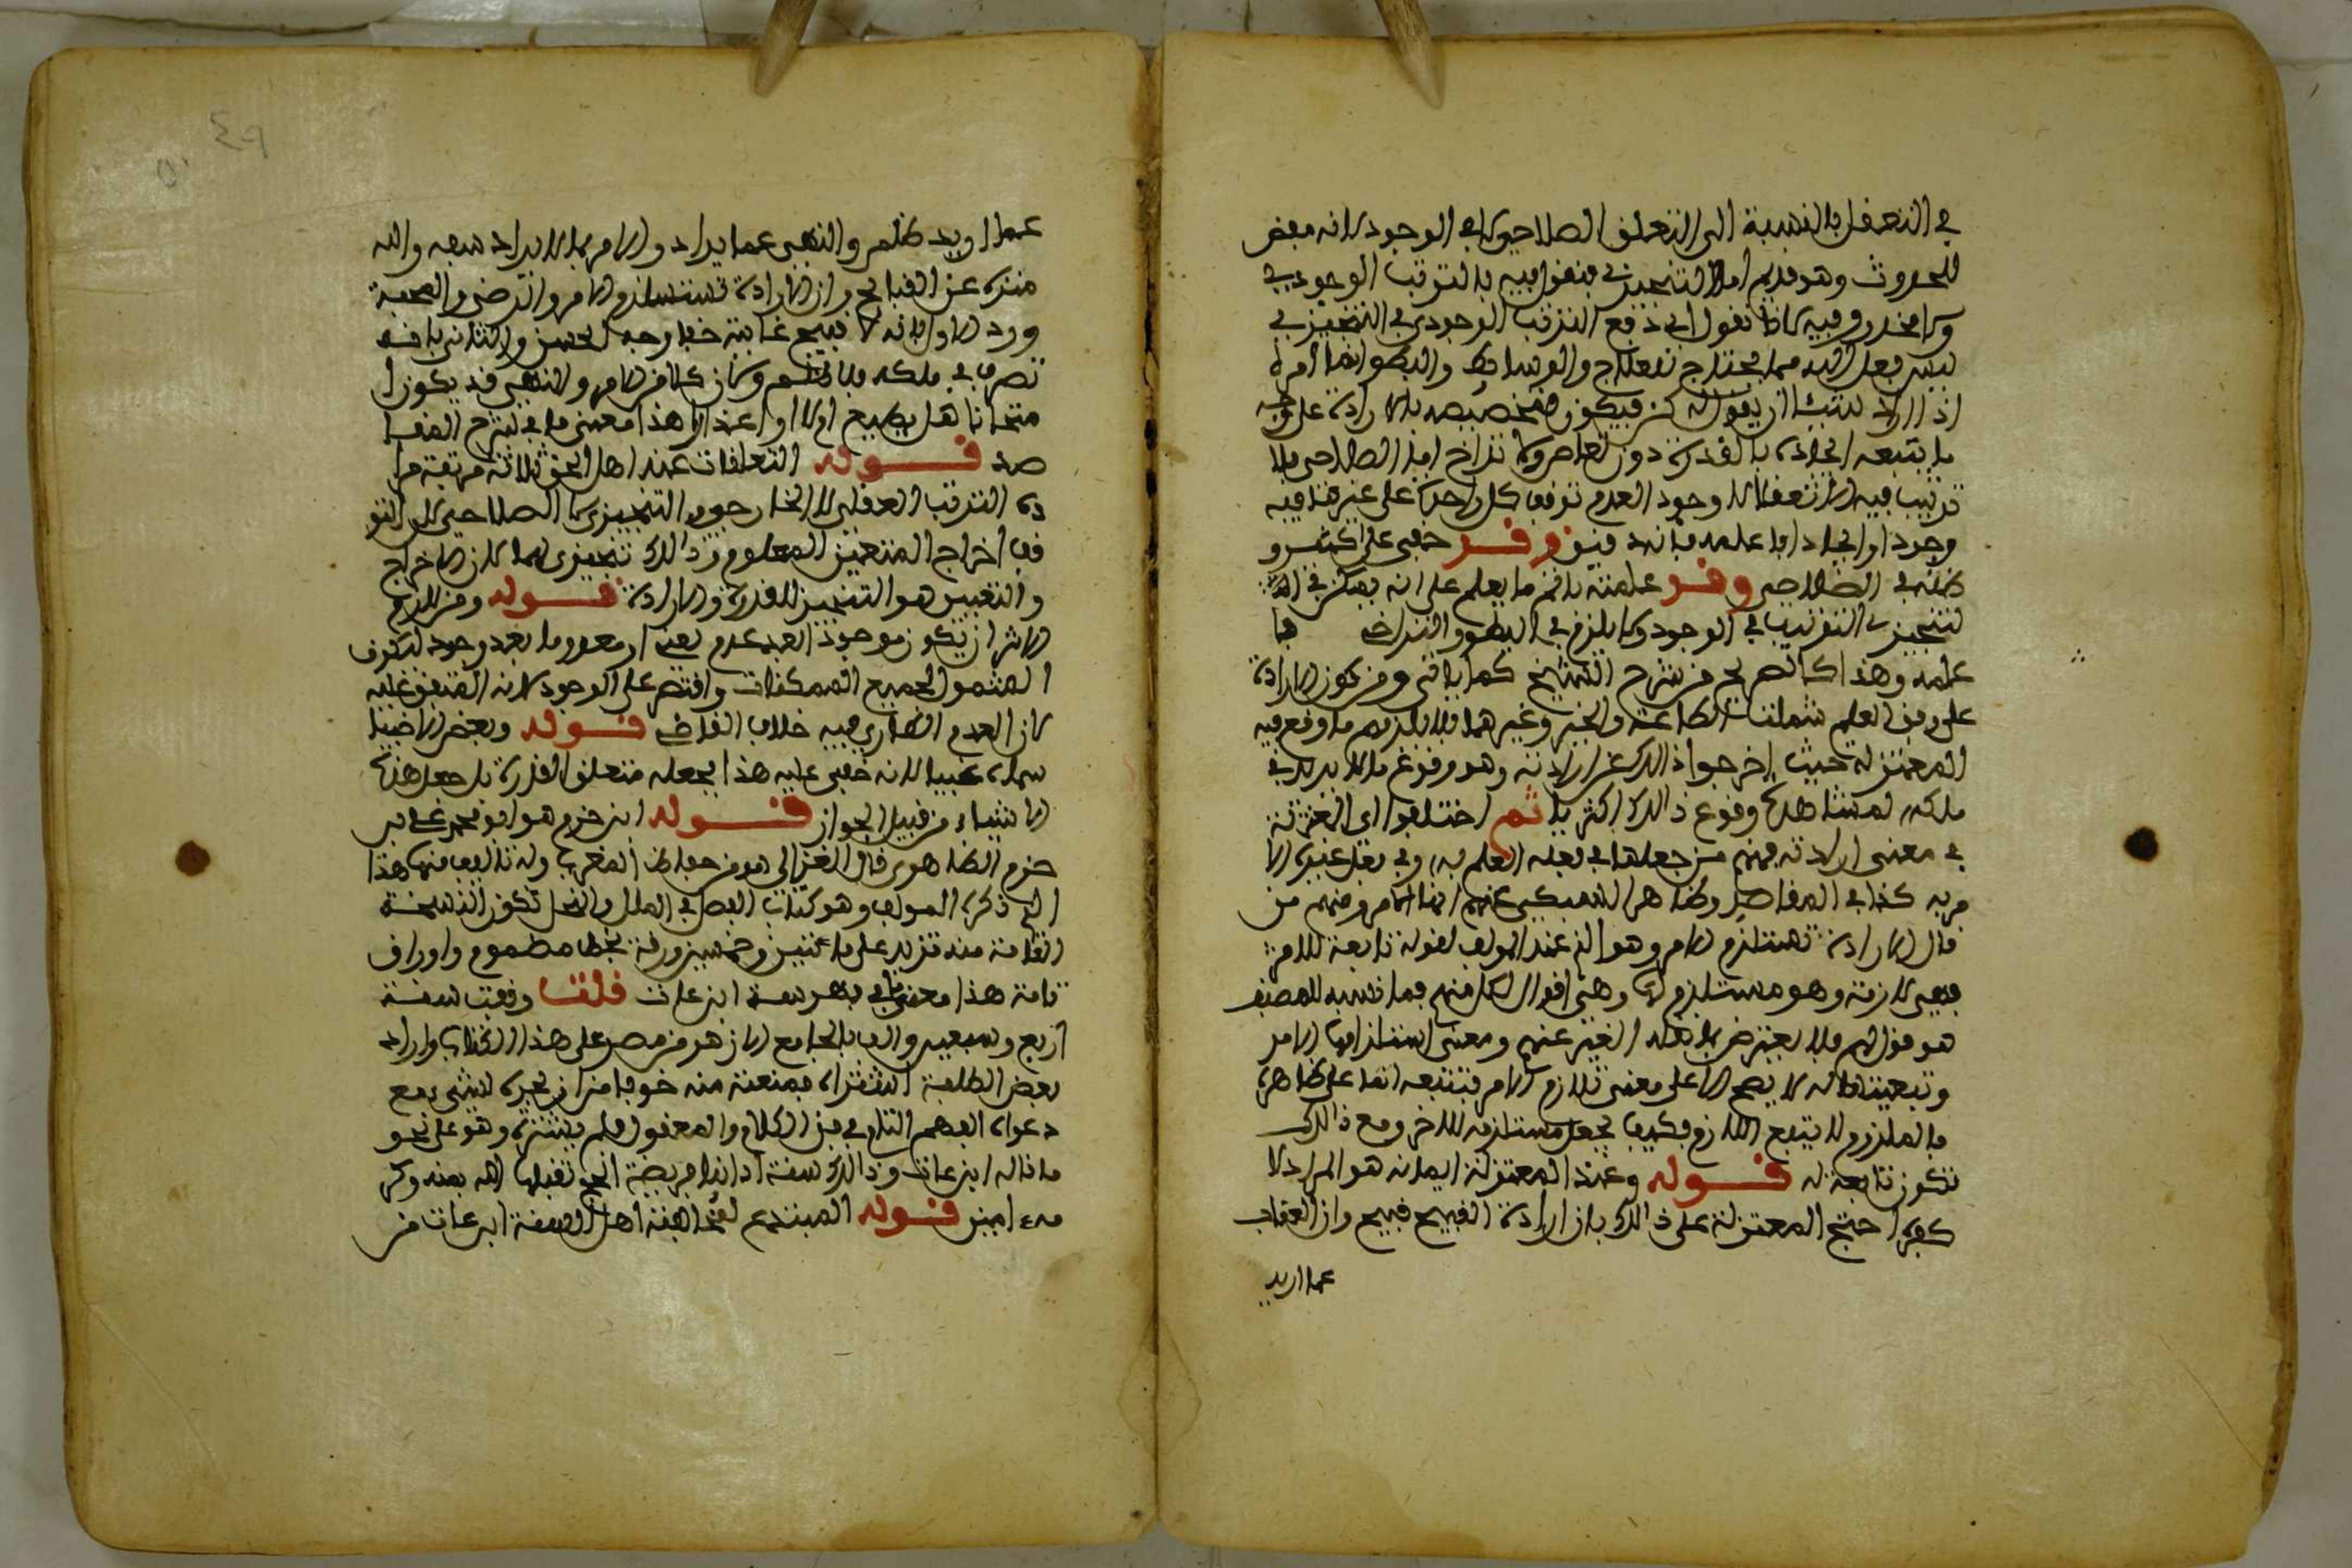 في التعقل بالنسبة الى التعلق الصلاحي لا في الوجود لانه مفض
للحدوث وهو قديم اما التنجيزي فنقول فيه بالترتب الوجودي
ولا محذور فيه لانا نقول اي دفع الترتب الوجودي في التنجيزي
ليس فعل الله مما يحتاج لعلاج والوسائط والبطو انما امره
اذا اراد شيئا ان يقول له كن فيكون فتخصيصه بالارادة على وجه
ما يتبعه ايجاده بالقدرة دون تراخ اما الصلاحي فلا
ترتيب فيه الا تعقلا لا وجود العدم توقف كل واحد على غير
وجودا او ايجادا ما علمه فانه وقد خفي على كثير و
ظنه في الصلاحي وقد علمت
التنجيزي الترتيب في الوجود ولا يلزم في البطو والتراخي
علمه وهذا كالصريح من شرح الشيخ كما ياتي ومن كون الارادة
على وفق العلم شملت الطاعة والخير وغيرهما فلا يلزم ما وقع فيه
المعتزلة حيث اخرجوا ذالك عن ارادته وهو وقوع ما لا يريد في
ملكه لمشاهدة وقوع ذالك اكثريا ثم اختلفوا اي المعتزلة
في معنى ارادته فمنهم من جعلها في فعله العلم به وفي فعل غيره الا
مر به كذا في المقاصد وظاهر السبكي عنهم انها الامر ومنهم من
قال الارادة تستلزم الامر وهو الذي عند المولف لقوله تابعة للامر
فهي لازمة وهو مستلزم لها وهي اقوال لكل منهم فما نسبه المصنف
هو قول لهم فلا يعترض بما نقله الغير عنهم ومعنى استلزامها الامر
وتبعيتها له لا يصح الا على معنى تلازم الامر فتتبعه اما على ظاهره
فالملزوم لا يتبع اللازم فكيف يجعل مستلزمه للاخر ومع ذالك
تكون تابعة له قوله وعند المعتزلة ايمانه هو المراد لا
كفره احتج المعتزلة على ذالك بان ارادة القبيح قبيح وان العقاب
عما اريد
عما اريد ظلم والنهي عما يراد والامر بما لا يراد سفه والله
منزه عن القبائح وان الارادة تستلزم الامر والرضى والمحبة
ورد الاول بانه لا قبيح غايته خفا وجه الحسن والثاني بانه
تصرف في ملكه فلا ظلم وكان كلا من الامر والنهي قد يكون ا
متحانا هل يطيع ام لا او اعذارا هذا معنى ما في شرح المقا
صد قوله التعلقات عند اهل الحق ثلاثة مرتبة مرا
ده الترتب العقلي لا الخارجي التنجيزي لا الصلاحي
فق اخراج المتعين المعلوم وذالك تنجيزي لهما لان الاخراج
والتعيين هو التنجيز للقدرة والارادة قوله ومن لازم
الاثر ان يكون موجودا بعد عدم يعني او معدوما بعد وجود ليكون
المشمول لجميع الممكنات واقتصر على الوجود لانه المتفق عليه
لان العدم الطاري فيه خلاف القاضي قوله وبعض الاغبيا
سماه غبيا لانه خفي عليه هذا بجعله متعلق القدرة بل جعل هذه
الاشياء من قبيل الجواز قوله ابن حزم هو ابو محمد علي بن
حزم الظاهري قال الغزالي هو من حفاظ المغرب وله تاليف منها هذا
الذي ذكره المولف وهو كتاب الفصل في الملل والنحل تكون النسخة
التامة منه تزيد على ماءتين وخمسين ورقة بخط مضموم واوراق
تامة هذا معنى ما في فهرسة ابن غازي قلت وقفت سنة
اربع وسبعين والف بالجامع الازهر من مصر على هذا الكتاب واراد
بعض الطلبة اشتراءه فمنعته منه خوفا من ان يجره لشيء مع
دعواه الفهم التام في فن الكلام والمعقول فلم يشتره وهو على نحو
ما قاله ابن غازي وذالك سنة ادائنا فريضة الحج تقبلها الله بمنه وكر
مه ءامين قوله المبتدع لمخالفته اهل السنة ابن غازي من